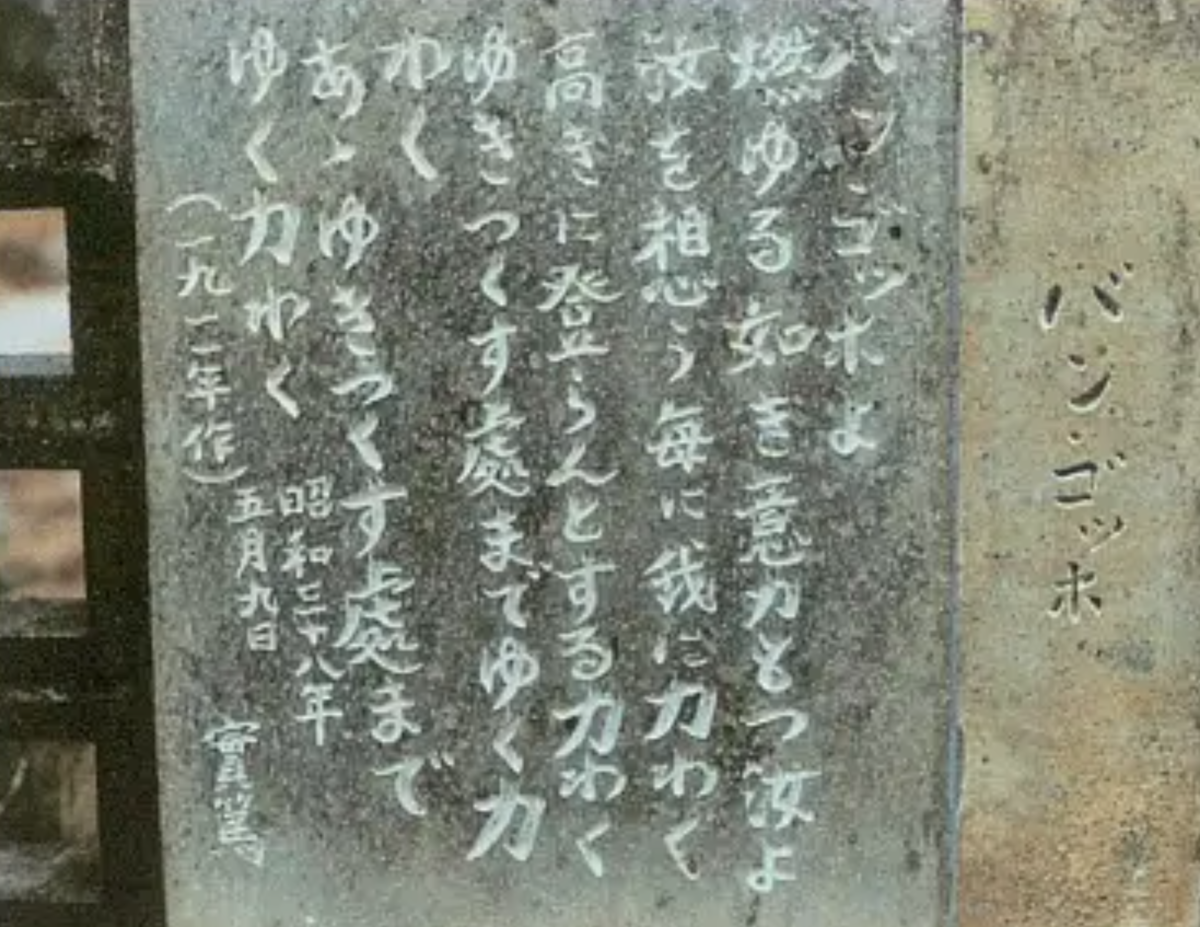 バン・ゴッホ
バン・ゴッホよ
燃ゆる如き意力もつ汝よ
汝を想う毎に我に力わく
高きに登らんとする力わく
ゆきつくす處までゆく力
わく
あゝゆきつくす處まで
ゆく力わく
(一九一一年作)
昭和三十八年
五月九日
實篤